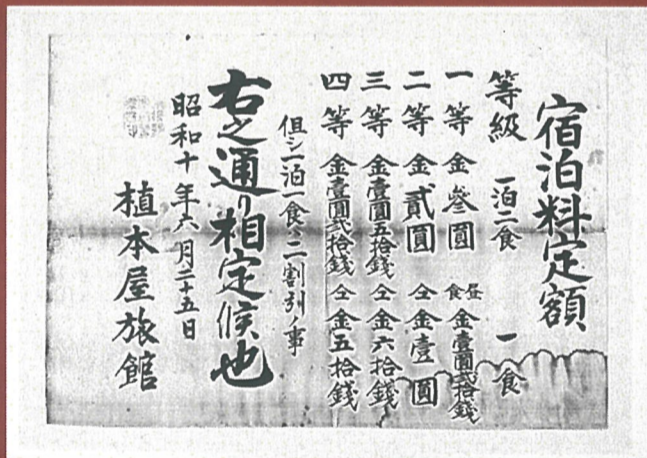 宿泊料定額
等級 一泊二食 一食
一等 金參圓 昼食 金壹圓貳拾錢
二等 金貳圓 仝 金壹圓
三等 金壹圓五拾錢 仝 金六拾錢
四等 金壹圓貳拾錢 仝 金五拾錢
但シ一泊一食ハ二割引ノ事
右之通り相定候也
昭和十年六月二十五日
植本屋旅館